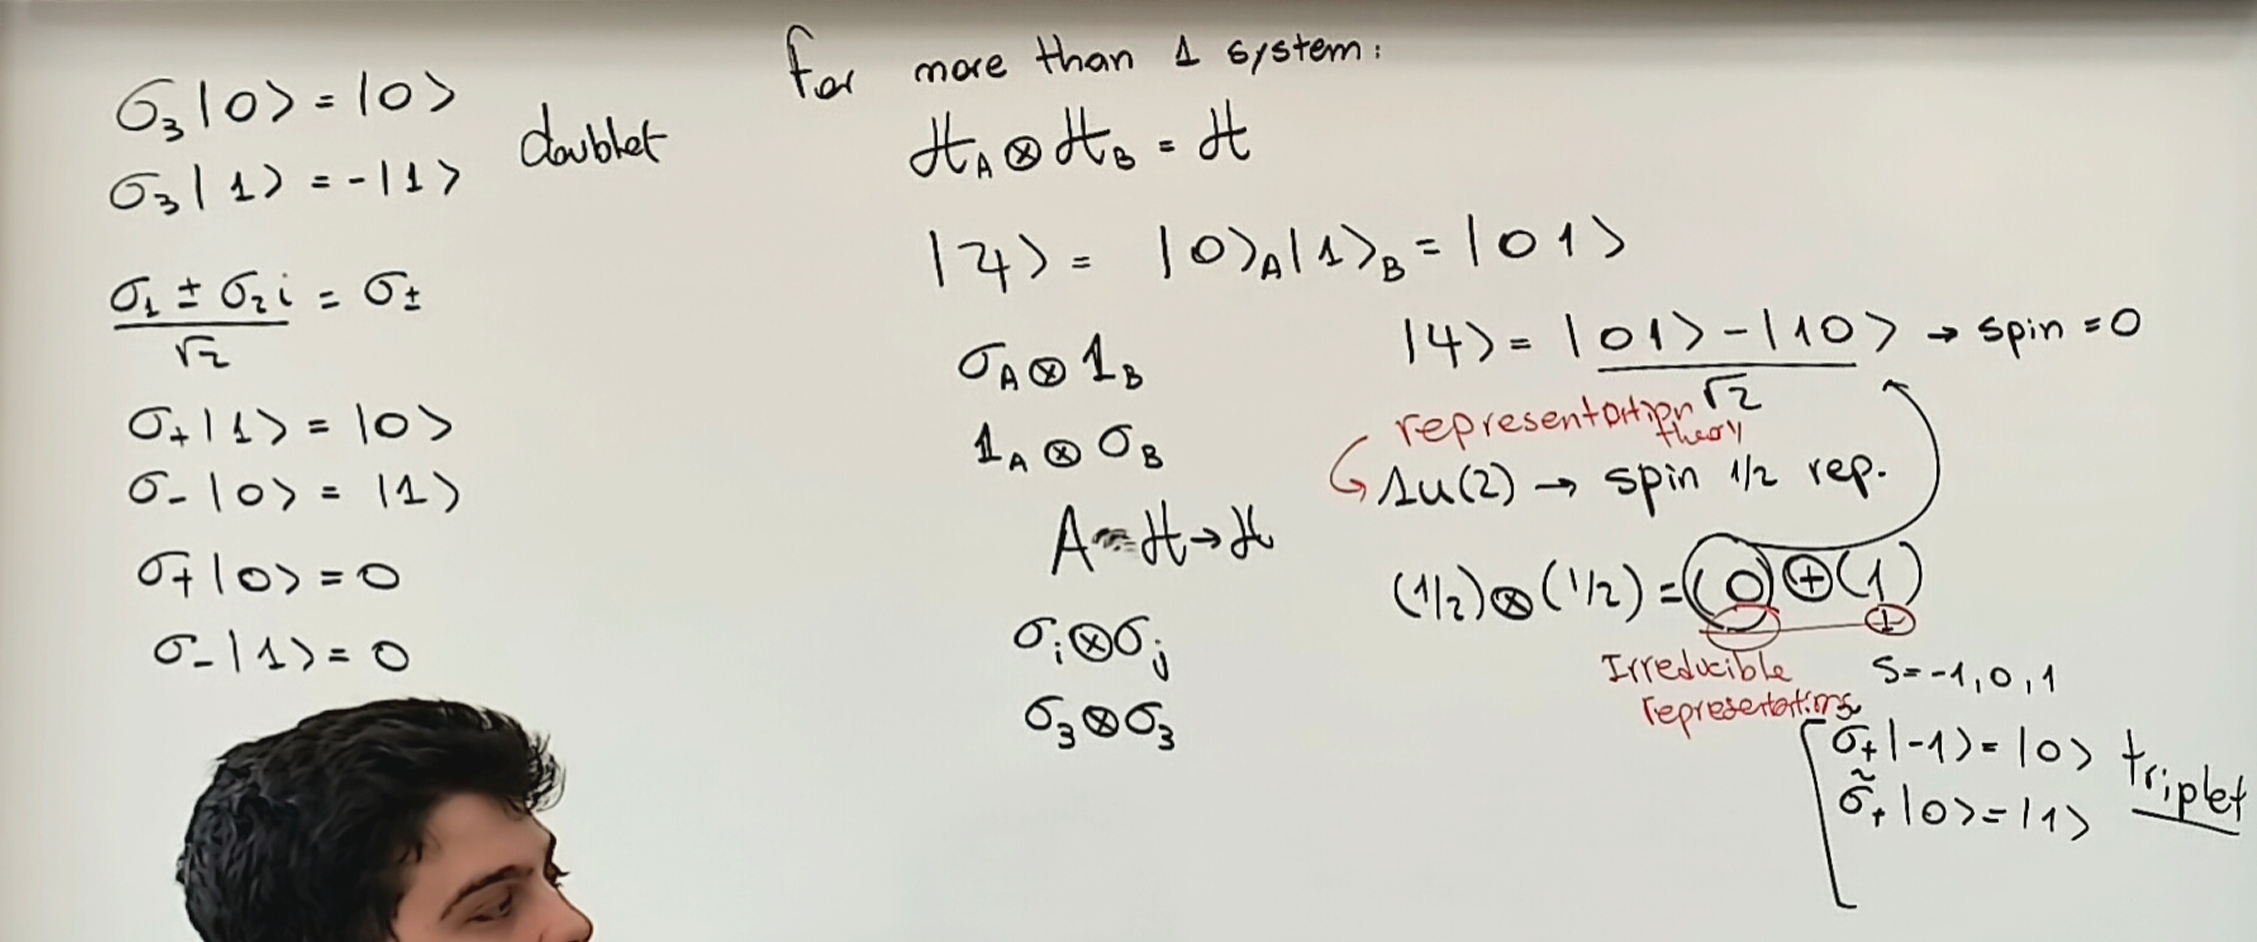 σ₃|0⟩ = |0⟩
σ₃|1⟩ = -|1⟩
doublet
σ₁ ± σ₂i / √2 = σ±
σ₊|1⟩ = |0⟩
σ₋|0⟩ = |1⟩
σ₊|0⟩ = 0
σ₋|1⟩ = 0
For more than 1 system:
ℋ_A ⊗ ℋ_B = ℋ
|ψ⟩ = |0⟩_A|1⟩_B = |01⟩
σ_A ⊗ 1_B
1_A ⊗ σ_B
A ℋ → ℋ
σᵢ ⊗ σⱼ
σ₃ ⊗ σ₃
|ψ⟩ = |01⟩ - |10⟩ / √2 → spin = 0
representation
theory
su(2) → spin 1/2 rep.
(1/2) ⊗ (1/2) = (0) ⊕ (1)
Irreducible
representations
s = -1, 0, 1
σ̃₊|-1⟩ = |0⟩
σ̃₊|0⟩ = |1⟩
triplet